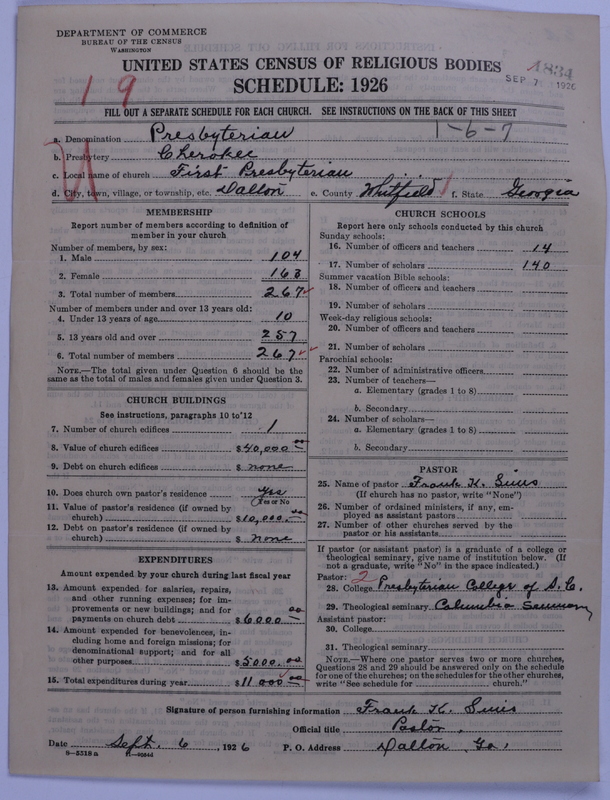 DEPARTMENT OF COMMERCE
BUREAU OF THE CENSUS
WASHINGTON
UNITED STATES CENSUS OF RELIGIOUS BODIES
SCHEDULE: 1926
1834
SEP 7 1926
19
FILL OUT A SEPARATE SCHEDULE FOR EACH CHURCH. SEE INSTRUCTIONS ON THE BACK OF THIS SHEET
1-6-7
a. Denomination Presbyterian
b. Presbytery Cherokee
c. Local name of church First Presbyterian
d. City, town, village, or township, etc. Dalton e. County Whitfield f. State Georgia
MEMBERSHIP
Report number of members according to definition of
member in your church
Number of members, by sex:
1. Male 104
2. Female 163
3. Total number of members 267
Number of members under and over 13 years old:
4. Under 13 years of age 10
5. 13 years old and over 257
6. Total number of members 267
NOTE.—The total given under Question 6 should be
same as the total of males and females given under Question 3.
CHURCH BUILDINGS
See instructions, paragraphs 10 to 12
7. Number of church edifices 1
8. Value of church edifices $40,000 00
9. Debt on church edifices $ none
10. Does church own pastor's residence Yes
(Yes or No
11. Value of pastor's residence (if owned by
church) $10,000.00
12. Debt on pastor's residence (if owned by
church) $ none
EXPENDITURES
Amount expended by your church during last fiscal year
13. Amount expended for salaries, repairs,
and other running expenses; for im-
provements or new buildings; and for
payments on church debt $6000 00
14. Amount expended for benevolences, in-
cluding home and foreign missions; for
denominational support; and for all
other purposes $5000.00
15. Total expenditures during year $11 000 00
CHURCH SCHOOLS
Report here only schools conducted by this church
Sunday schools:
16. Number of officers and teachers 14
17. Number of scholars 140
Summer vacation Bible schools:
18. Number of officers and teachers
19. Number of scholars
Week-day religious schools:
20. Number of officers and teachers
21. Number of scholars
Parochial schools:
22. Number of administrative officers
23. Number of teachers—
a. Elementary (grades 1 to 8)
b. Secondary
24. Number of scholars—
a. Elementary (grades 1 to 8)
b. Secondary
PASTOR
25. Name of pastor Frank K. Sims
(If church has no pastor, write "None")
26. Number of ordained ministers, if any, em-
ployed as assistant pastors
27. Number of other churches served by the
pastor or his assistants
If pastor (or assistant pastor) is a graduate of a college or
theological seminary, give name of institution below. (If
not a graduate, write "No" in the space indicated.)
Pastor: 2
28. College Presbyterian College of S. C.
29. Theological seminary Columbia Seminary
Assistant pastor:
30. College
31. Theological seminary
NOTE.—Where one pastor serves two or more churches,
Questions 28 and 29 should be answered only on the schedule
for one of the churches; on the schedules for the other churches,
write "See schedule for church."
Signature of person furnishing information Frank K. Sims
Official title Pastor,
Date Sept. 6, 1926 P. O. Address Dalton, Ga,
8-5318a